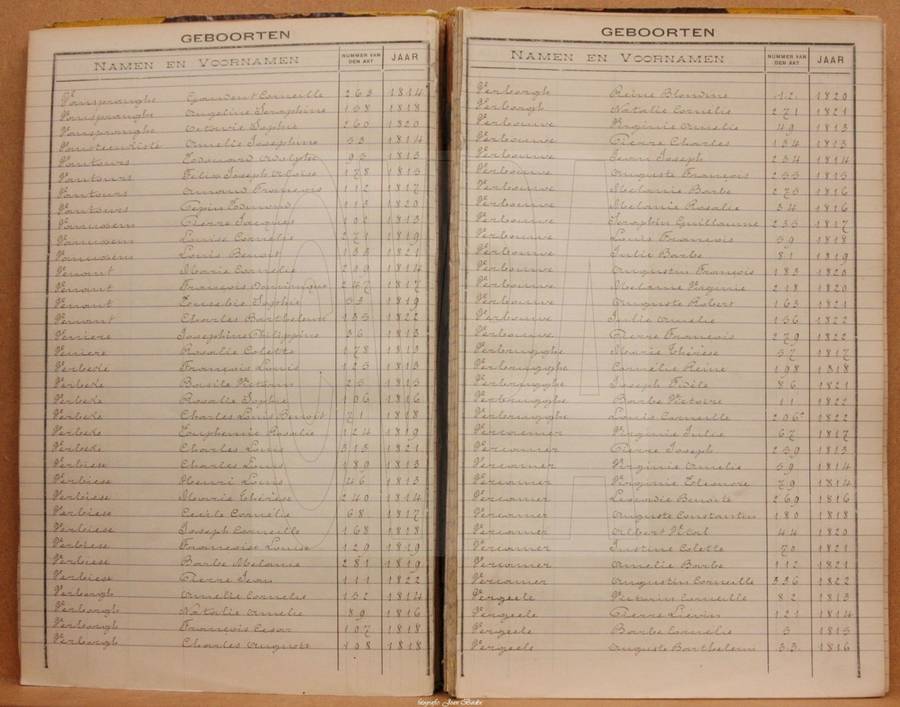 GEBOORTEN
NAMEN EN VOORNAMEN NUMMER VAN DEN AKT JAAR
Vanspranghe Corneille 263 1814
Vanspranghe Angeline Seraphine 158 1818
Vanspranghe Octavie Sophie 260 1820
Amelie Josephine 53 1814
Vantours Edouard Adolphe 93 1813
Vantours Felix Joseph Aloise 178 1815
Vantours Amand François 112 1817
Vantours Pepin Edmond 113 1820
Pierre Jacques 102 1813
Louise Cornelie 271 1819
Louis Benoit 133 1821
Venant Marie Cornelie 219 1814
Venant François Dominique 247 1817
Venant Eousebie Sophie 53 1819
Venant Charles Barthelemi 135 1822
Veniere Josephine Philippine 36 1813
Veniere Rosalie Colette 178 1815
Verbeke François Louis 125 1813
Verbeke Basile Victorin 25 1815
Verbeke Rosalie Sophie 106 1816
Verbeke Charles Louis Benoit 71 1818
Verbeke Euphemie Rosalie 124 1819
Verbeke Charles Louis 313 1821
Verbiese Charles Louis 189 1813
Verbiese Henri Louis 46 1813
Verbiese Marie Thérèse 240 1814
Verbiese Cecile Cornelie 68 1817
Verbiese Joseph Corneille 168 1818
Verbiese Françoise Louise 129 1819
Verbiese Barbe Melanie 281 1819
Verbiese Pierre Jean 111 1822
Verborgh Amelie Cornelie 152 1814
Verborgh Natalie Amelie 89 1816
Verborgh François Cesar 107 1818
Verborgh Charles Auguste 108 1818
GEBOORTEN
NAMEN EN VOORNAMEN NUMMER VAN DEN AKT JAAR
Verborgh Reine Blondine 12 1820
Verborgh Natalie Cornelie 271 1821
Verbouwe Virginie Amelie 49 1813
Verbouwe Pierre Charles 134 1813
Verbouwe Jean Joseph 234 1814
Verbouwe Auguste François 255 1815
Verbouwe Melanie Barbe 275 1816
Verbouwe Melanie Rosalie 34 1816
Verbouwe Seraphin Guillaume 235 1817
Verbouwe Louis François 59 1818
Verbouwe Julie Barbe 81 1819
Verbouwe Augustin François 183 1820
Verbouwe Melanie Virginie 218 1820
Verbouwe Auguste Robert 163 1821
Verbouwe Julie Amelie 156 1822
Verbouwe Pierre François 279 1822
Verbrugghe Marie Thérèse 57 1817
Verbrugghe Cornelie Reine 198 1818
Verbrugghe Joseph Fidèle 86 1821
Verbrugghe Barbe Victoire 11 1822
Verbrugghe Louis Corneille 206 1822
Vercamer Virginie Julie 67 1817
Vercamer Pierre Joseph 259 1813
Vercamer Virginie Amelie 59 1814
Vercamer Virginie Eleonore 79 1814
Vercamer Leocadie Benoite 269 1816
Vercamer Auguste Constantin 180 1818
Vercamer Albert Vital 44 1820
Vercamer Justine Colette 70 1821
Vercamer Amelie Barbe 112 1821
Vercamer Augustin Corneille 336 1822
Vergeele Victorin Corneille 82 1813
Vergeele Pierre Lievin 121 1814
Vergeele Barbe Cornelie 3 1815
Vergeele Auguste Barthelemi 33 1816